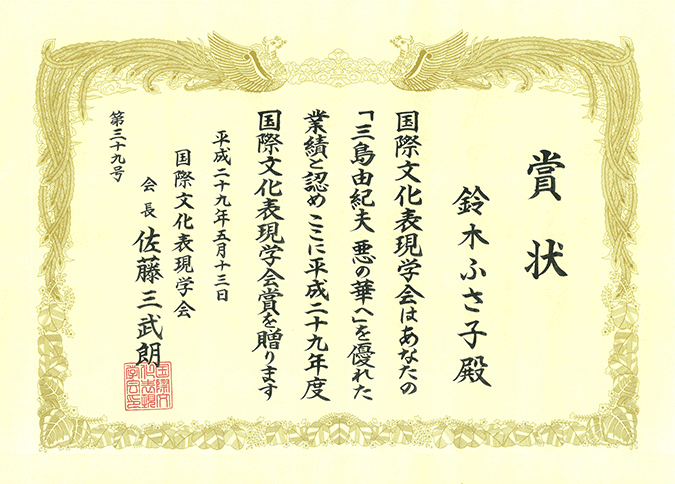 賞状
鈴木ふさ子殿
国際文化表現学会はあなたの
「三島由紀夫 悪の華へ」を優れた
業績と認め ここに平成二十九年度
国際文化表現学会賞を贈ります
平成二十九年五月十三日
国際文化表現学会
会長 佐藤三武朗
第三十九号
国際文
化表現
学会印